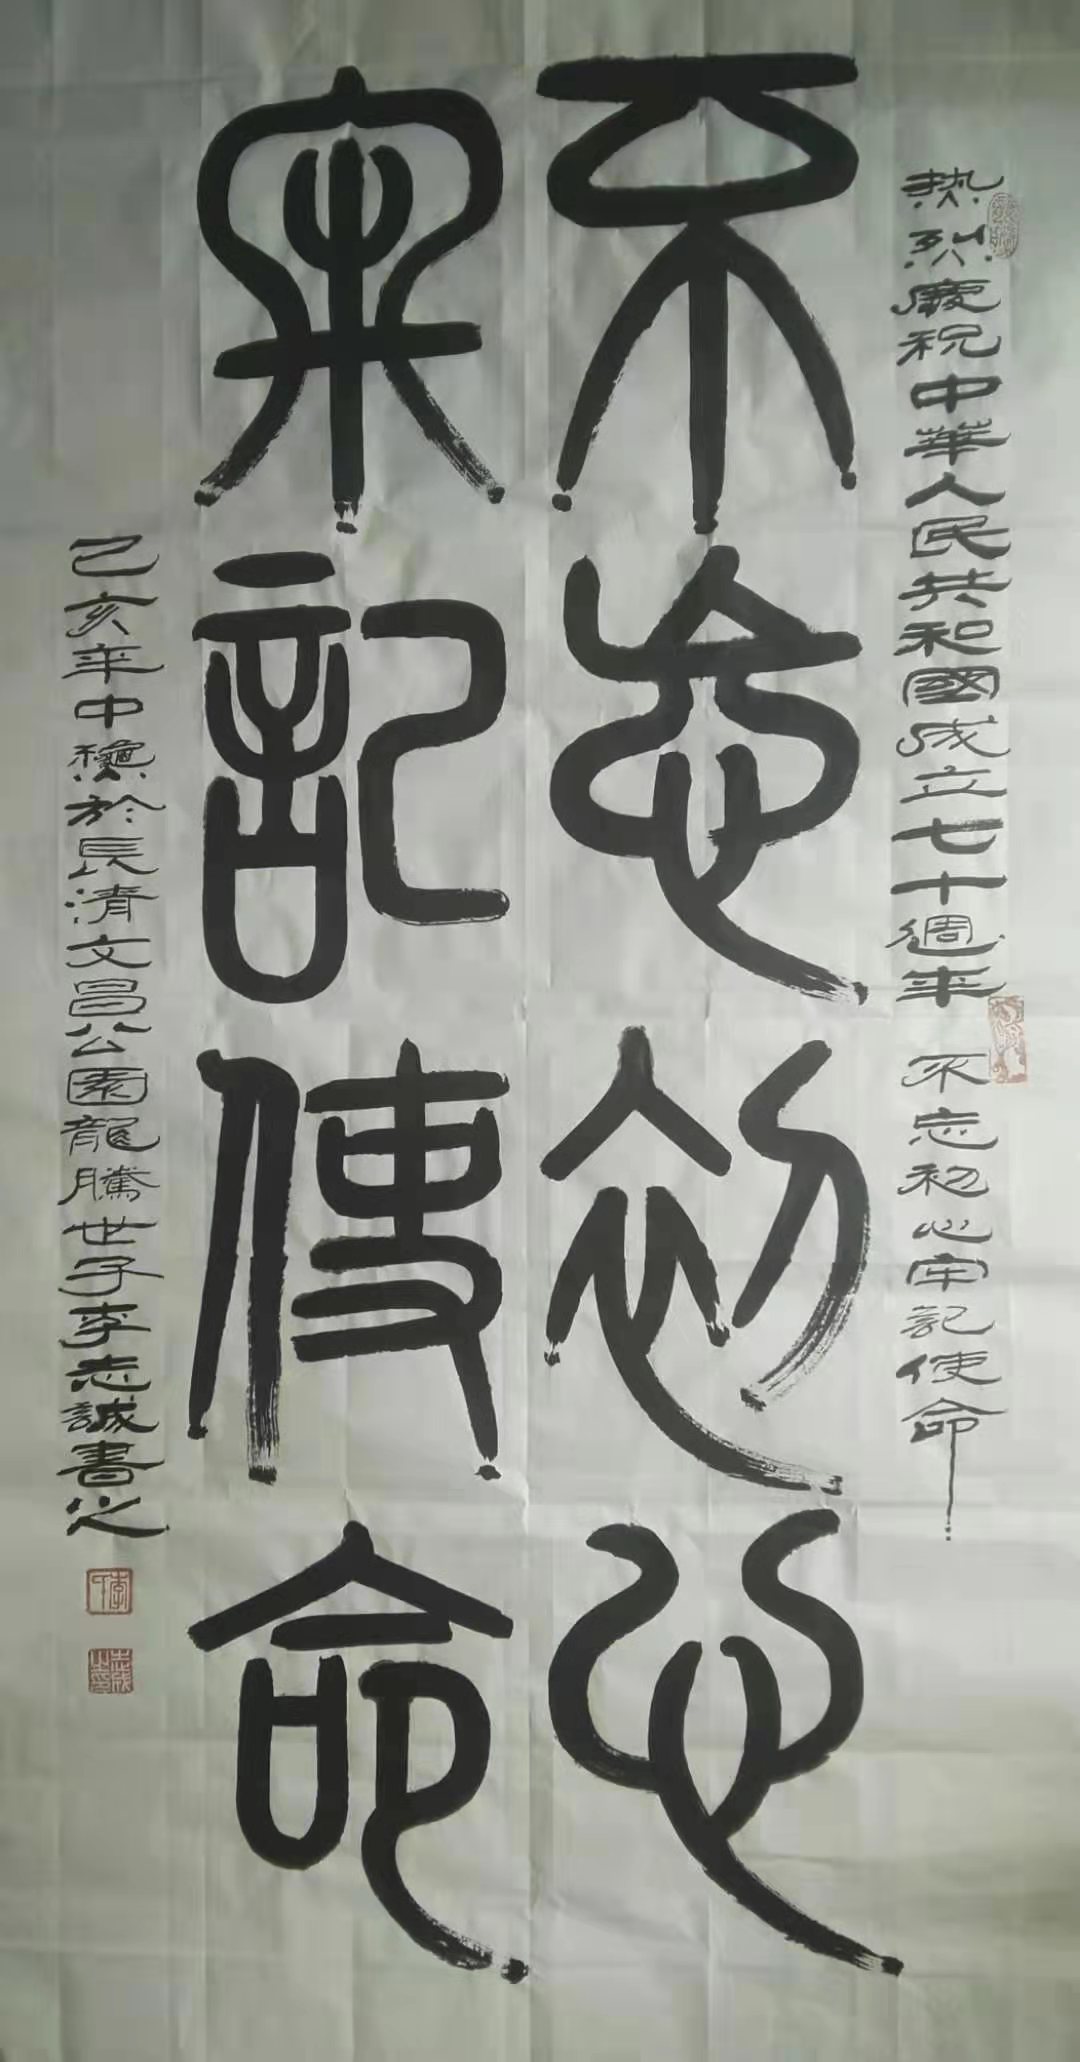 熱烈慶祝中華人民共和國成立七十週年 不忘初心牢記使命
不忘初心
牢記使命
己亥年中龝於長清文昌公園龍騰世子李志誠書之